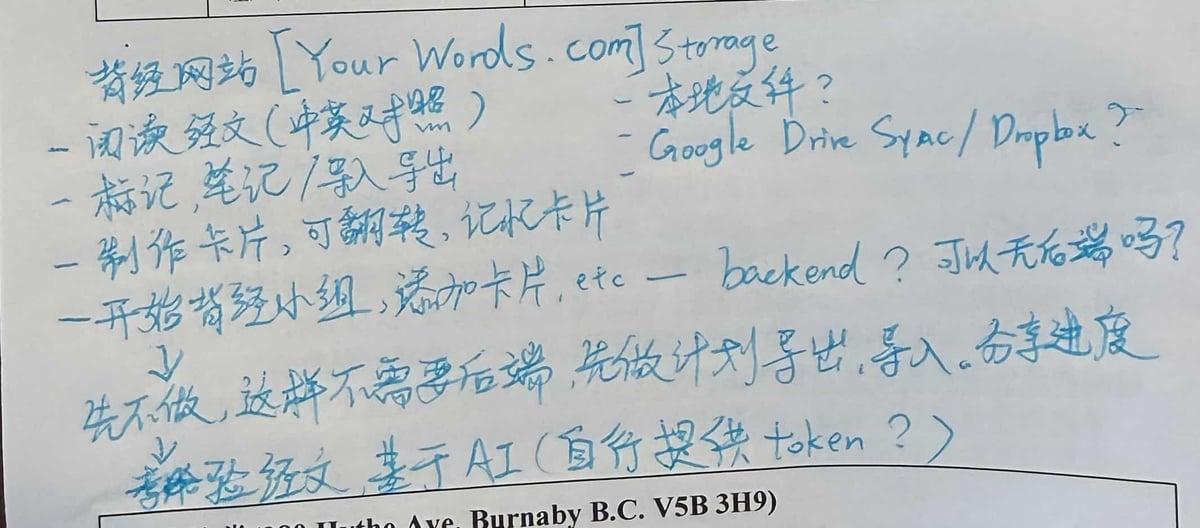 背经网站 [Your Words.com] Storage
- 本地文件?
- 阅读经文(中英对照)
- Google Drive Sync/Dropbox?
- 标记,笔记/导入导出
-
- 制作卡片,可翻转,记忆卡片
- 开始背经小组,添加卡片,etc — backend? 可以无后端吗?
↓
先不做,这样不需要后端,先做计划导出,导入。分享进度
↓
验经文,基于AI(自行提供token?)
Ave, Burnaby B.C. V5B 3H9)